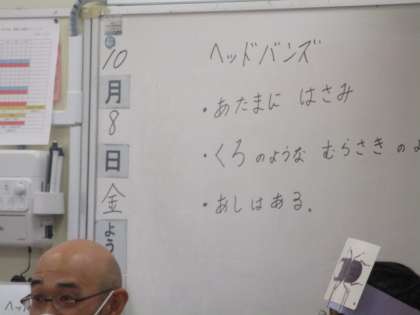 ヘッドバンズ
・あたまに はさみ
・くろのような むらさきの
・あしはある。
10
月
8
日
金
よう